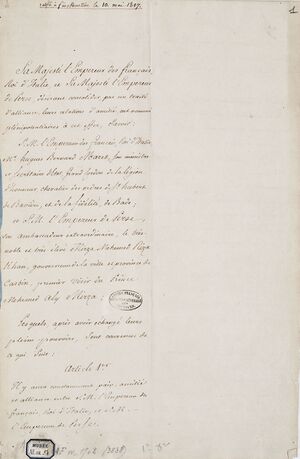 le 10. mai 1807.
1
Sa Majesté l'Empereur des français,
Roi d'Italie, et Sa Majesté l'Empereur
de Perse désirant consolider par un traité
d'alliance leurs relations d'amitié, ont nommé
plénipotentiaires à cet effet, savoir:
S. M. l'Empereur des français, Roi d'Italie
Mr. hugues Bernard Maret, son ministre
et Secrétaire d'État, Grand Cordon de la légion
d'honneur, chevalier des ordres de St. hubert
de Bavière, et de la fidélité, de Bade;
et S. M. l'Empereur de Perse
son ambassadeur extraordinaire, le très noble
et très élevé Mirza Mohamed Riza
Khan, gouverneur de la ville et province de
Casbin, premier vésir du Prince
Mohamed Aly Mirza:
Lesquels, après avoir échangé leurs
pleins pouvoirs, sont convenus de
ce qui suit:
Article 1er
Il y aura constamment paix, amitié
et alliance entre S. M. l'Empereur des
français, Roi d'Italie, et S. M.
l'Empereur de Perse.
MUSÉE
AE III